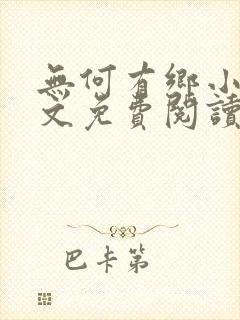 無何有鄉小
文免費閱讀
巴卡第